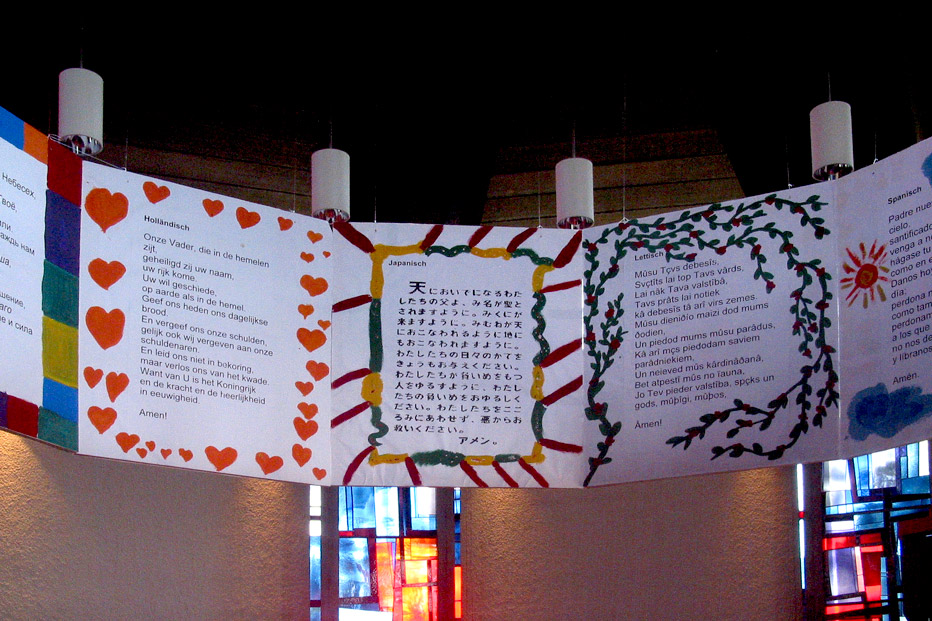 Небесех,
Твоё.
нам
и сила
Holländisch
Onze Vader, die in de hemelen
zijt,
geheiligd zij uw naam,
uw rijk kome.
Uw wil geschiede,
op aarde als in de hemel.
Geef ons heden ons dagelijkse
brood.
En vergeef ons onze schulden,
gelijk ook wij vergeven aan onze
schuldenaren.
En leid ons niet in bekoring,
maar verlos ons van het kwade.
Want van U is het Koningrijk
en de kracht en de heerlijkheid
in eeuwigheid.
Amen!
Japanisch
天においでになるわた
したちの父よ、み名が聖と
されますように。みくにが
来ますように。みむねが天
におこなわれるように地に
もおこなわれますように。
わたしたちの日々のかてを
きょうもお与えください。
わたしたちが負いめをもつ
人をゆるすように、わたし
たちの負いめをおゆるしく
ださい。わたしたちをここ
ろみにあわせず、悪からお
救いください。
アメン。
Lettisch
Mūsu Tçvs debesîs,
Svçtîts lai top Tavs vârds,
Lai nâk Tava valstîbâ.
Tavs prâts lai notiek
kâ debesîs tâ arî virs zemes.
Mûsu dieniðío maizi dod mums
ðodien,
Un piedod mums mûsu parâdus,
Kâ arî mçs piedodam saviem
parâdniekiem,
Un neieved mûs kârdinâðanâ,
Bet atpestî mûs no ïauna,
Jo Tev pieder valstîba, spçks un
gods, mûþîgi, mûþos,
Âmen!
Spanisch
Padre nue
cielo,
santificado
venga a no
hágase tu
como en e
Danos hoy
día;
perdona n
como
perdonam
a los que
no nos de
y líbranos
Amén.